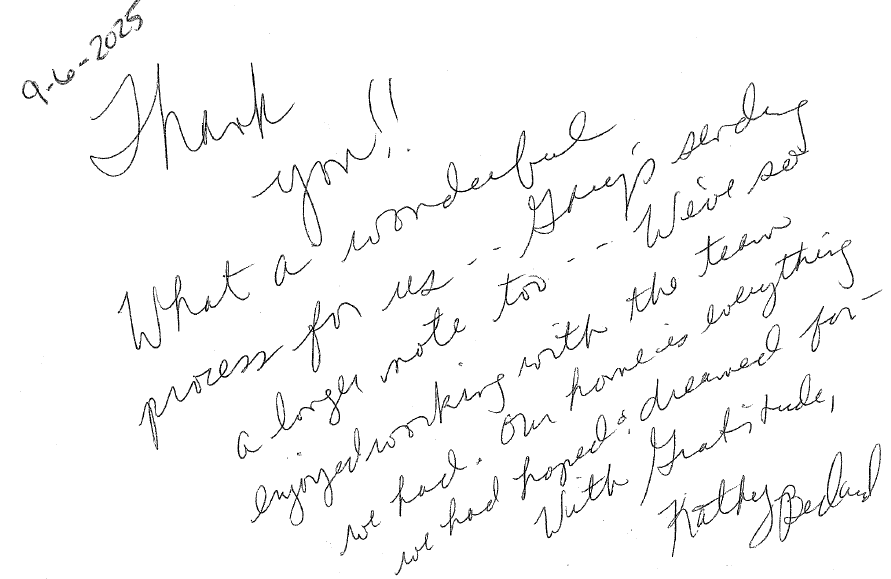 9-6-2025
Thank
you!!
What a wonderful
process for us -- Gary's sending
a longer note too -- We've so
enjoyed working with the team
we had. Our home is everything
we had hoped & dreamed for-
With Gratitude,
Kathy